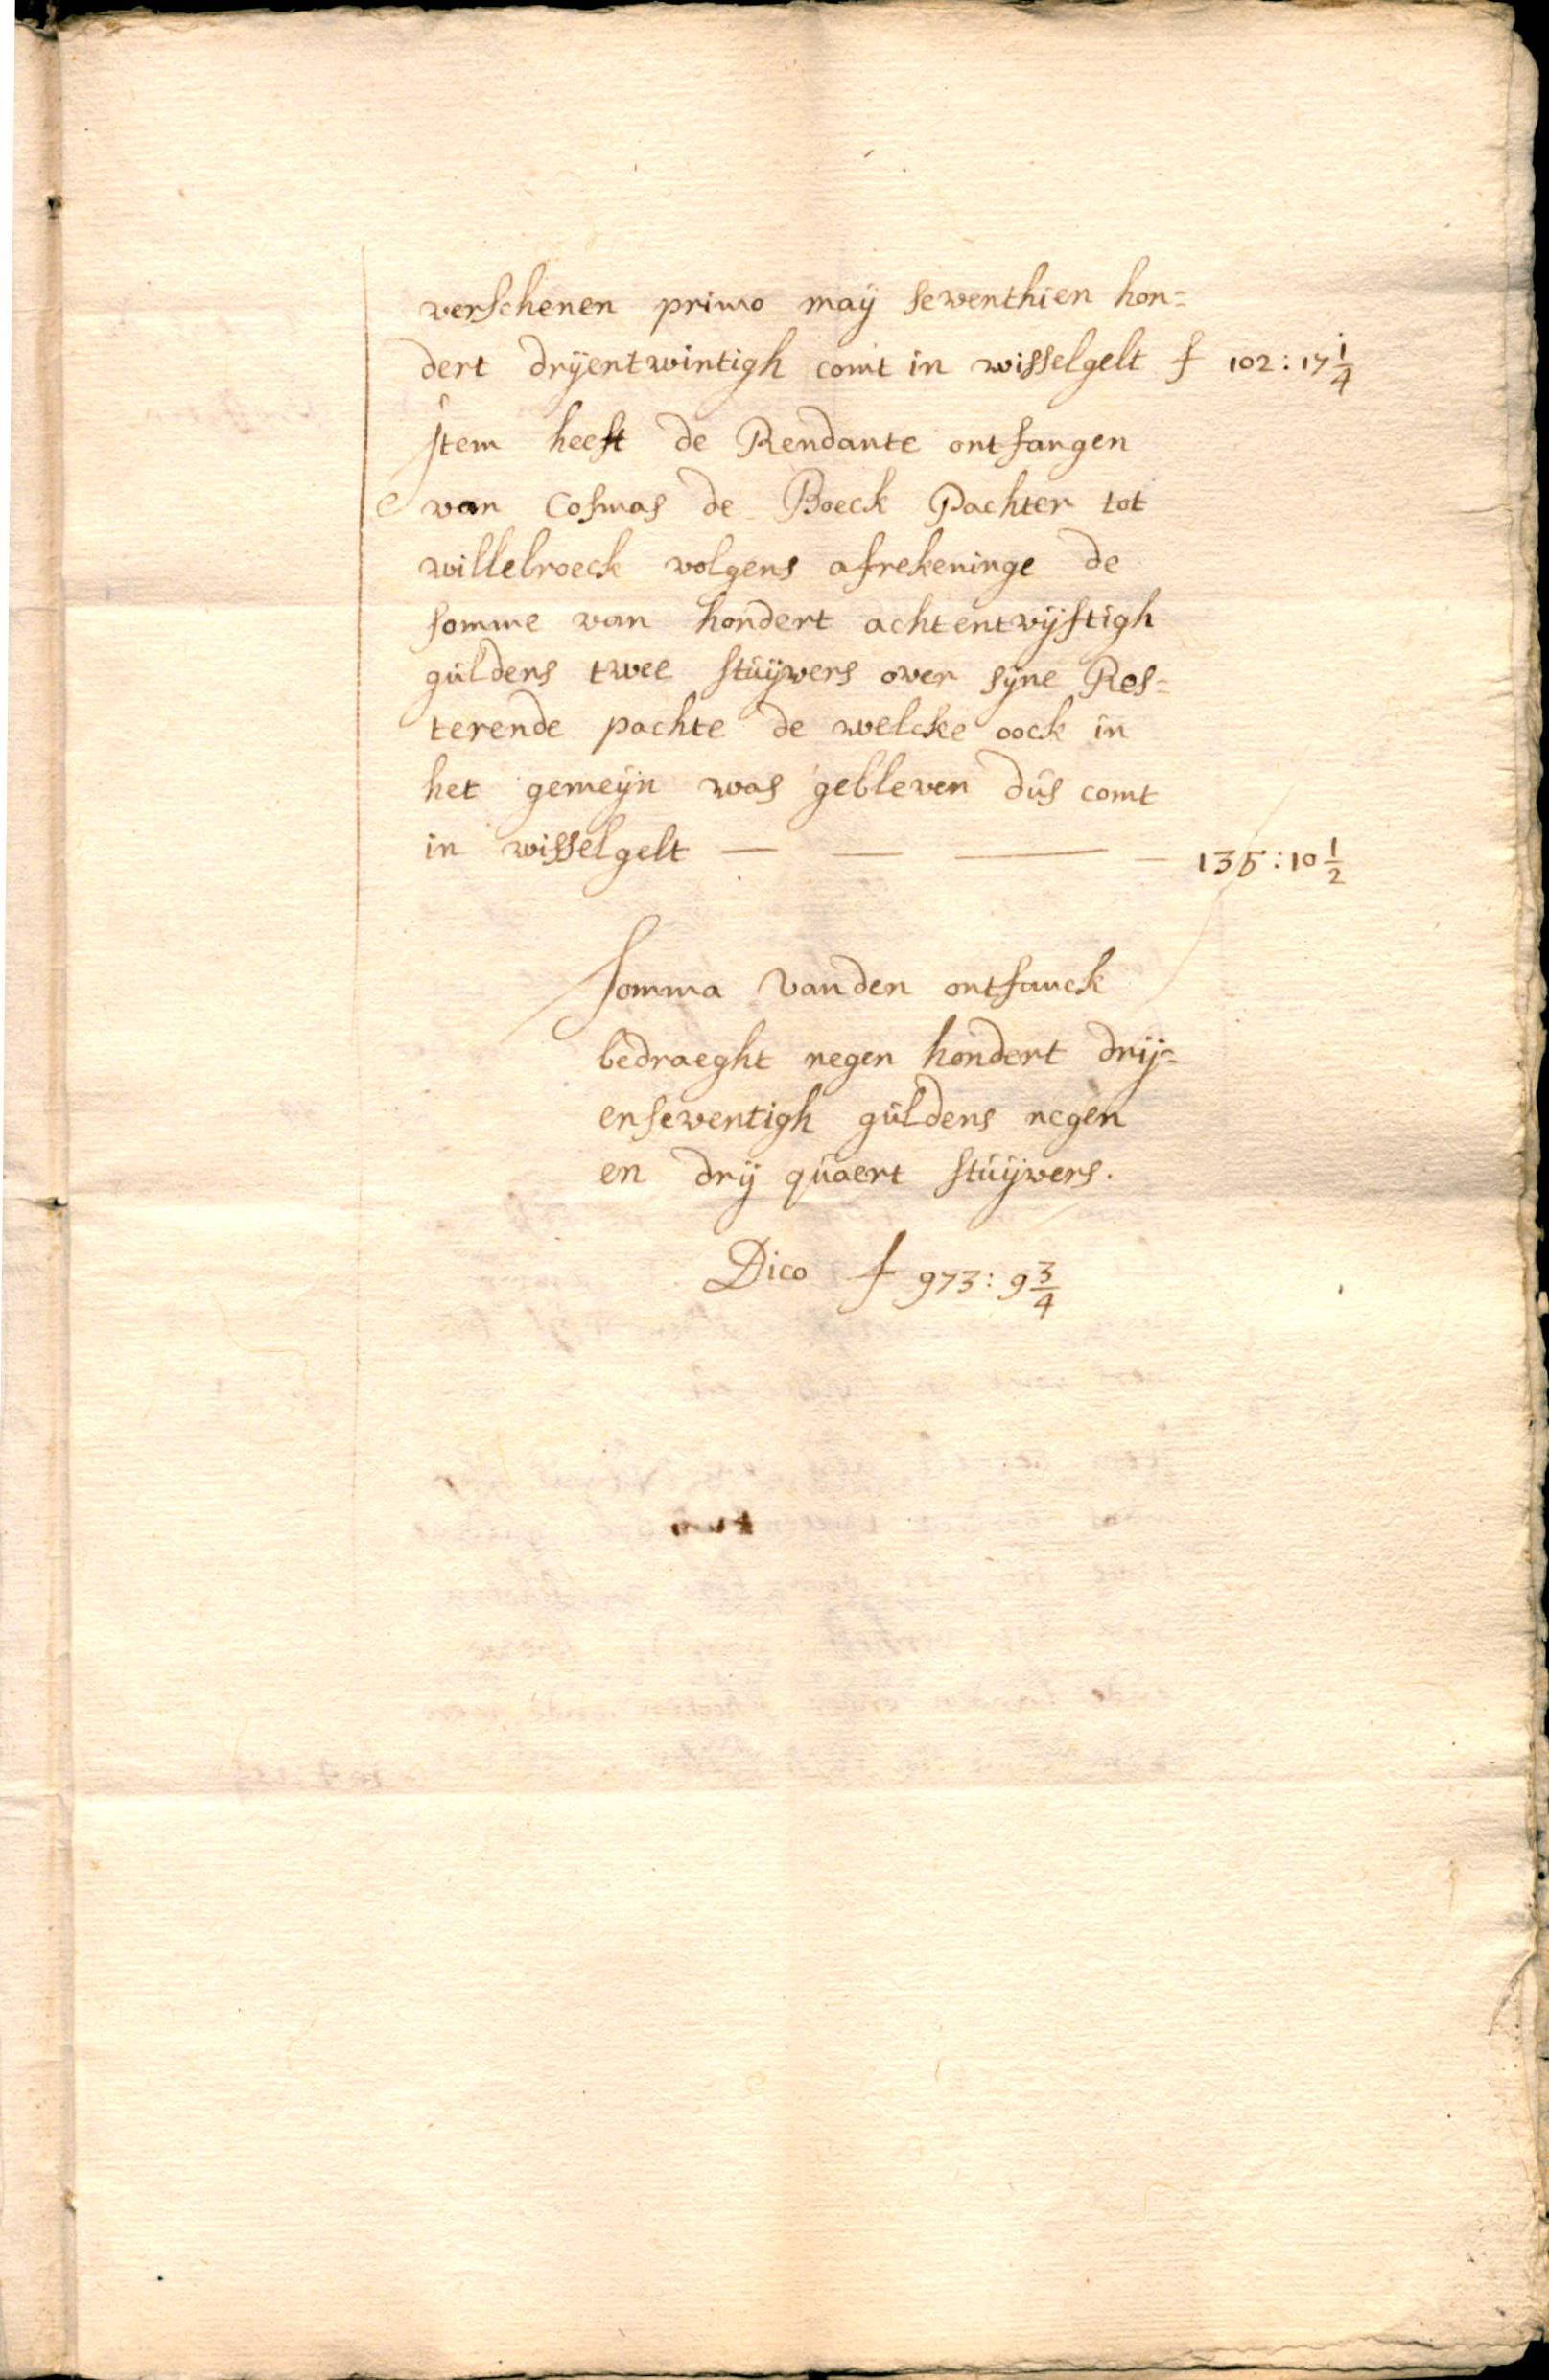 verschenen primo maij seventhien hon=
dert drijentwintigh comt in wisselgelt f 102:17 1/4
Jtem heeft de Rendante ontfangen
van Cosmas de Boeck Pachter tot
willebroeck volgens afrekeninge de
somme van hondert achtentvijftigh
guldens twee stuijvers over sijne Res=
terende pachte de welcke oock in
het gemeijn was gebleven dus comt
in wisselgelt — — — — 135:10 1/2
Somma vanden ontfanck
bedraeght negen hondert drij=
enseventigh guldens negen
en drij quaert stuijvers.
Dico f 973:9 3/4